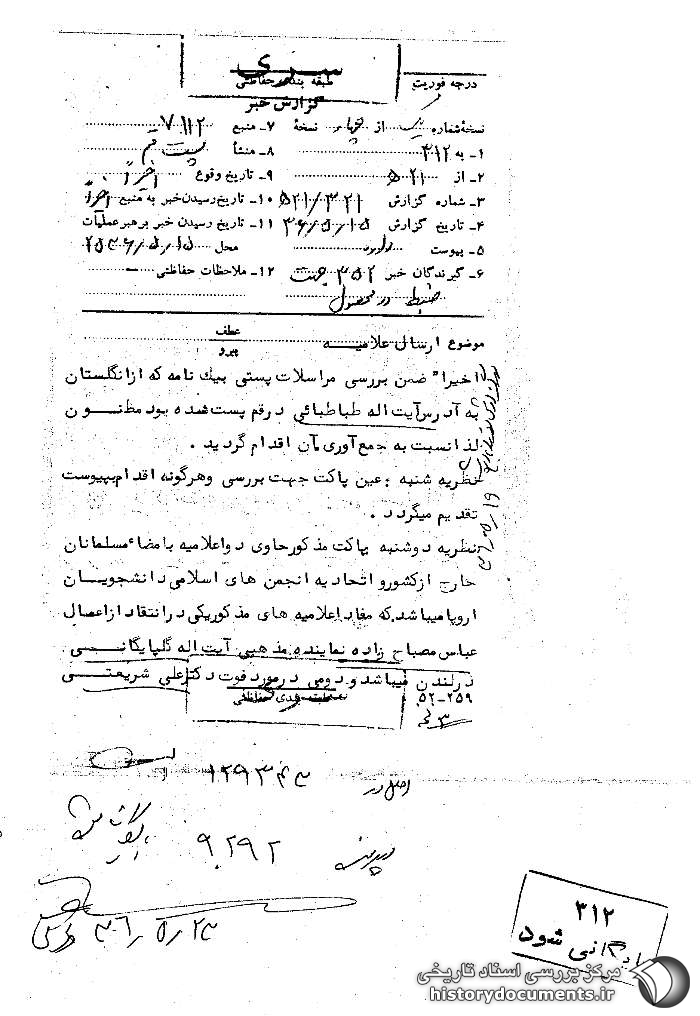 سری
درجه فوریت
طبقه بندی حفاظتی
گزارش خبر
نسخهٔ شماره یک از چهار نسخهٔ
۷ـ منبع ۷۱۱۲
۱ـ به ۳۱۲
۸ـ منشأ پست قم
۲ـ از ۲۱ ه
۹ـ تاریخ وقوع اخیراً
۳ـ شماره گزارش ۵۲۱/۳۲۱
۱۰ـ تاریخ رسیدن خبر به منبع اخیراً
۴ـ تاریخ گزارش ۳۶/۵/۱۵
۱۱ـ تاریخ رسیدن خبر برهبر عملیات
۵ـ پیوست دارد
محل ۲۵۳۶/۵/۱۵
۶ـ گیرندگان خبر ۳۵۲ جهت
۱۲ـ ملاحظات حفاظتی ـ
ضبط در محصول
موضوع ارسال علامیه
عطف
پیرو
اخیرا" ضمن بررسی مراسلات پستی بیك نامه که ازانگلستان
به آدرس آیت اله طباطبائی درقم پست شده بود مظنون
لذا نسبت به جمع آوری آن اقدام گردید .
نظریه شنبه : عین پاکت جهت بررسی وهرگونه اقدام بپیوست
تقدیم میگردد .
نظریه دوشنبه پاکت مذکورحاوی دواعلامیه بامضاء مسلمانان
خارج ازکشورو اتحادیه انجمن های اسلامی دانشجویان
اروپا میباشد که مفاد اعلامیه های مذکوریکی درانتقاد ازاعمال
عباس مصباح زاده نماینده مذهبی آیت اله گلپایگانی
درلندن میباشد و دومی درمورد فوت دکترعلی شریعتی
۵۲-۲۵۹
طبقه بندی حفاظتی
اصل در ۱۲۹۳۴۳
پرونده ۹۰۲۹۲
۳۶/۵/۲۳
۳۱۲
بایگانی شود
مرکز بررسی اسناد تاریخی
historydocuments.ir